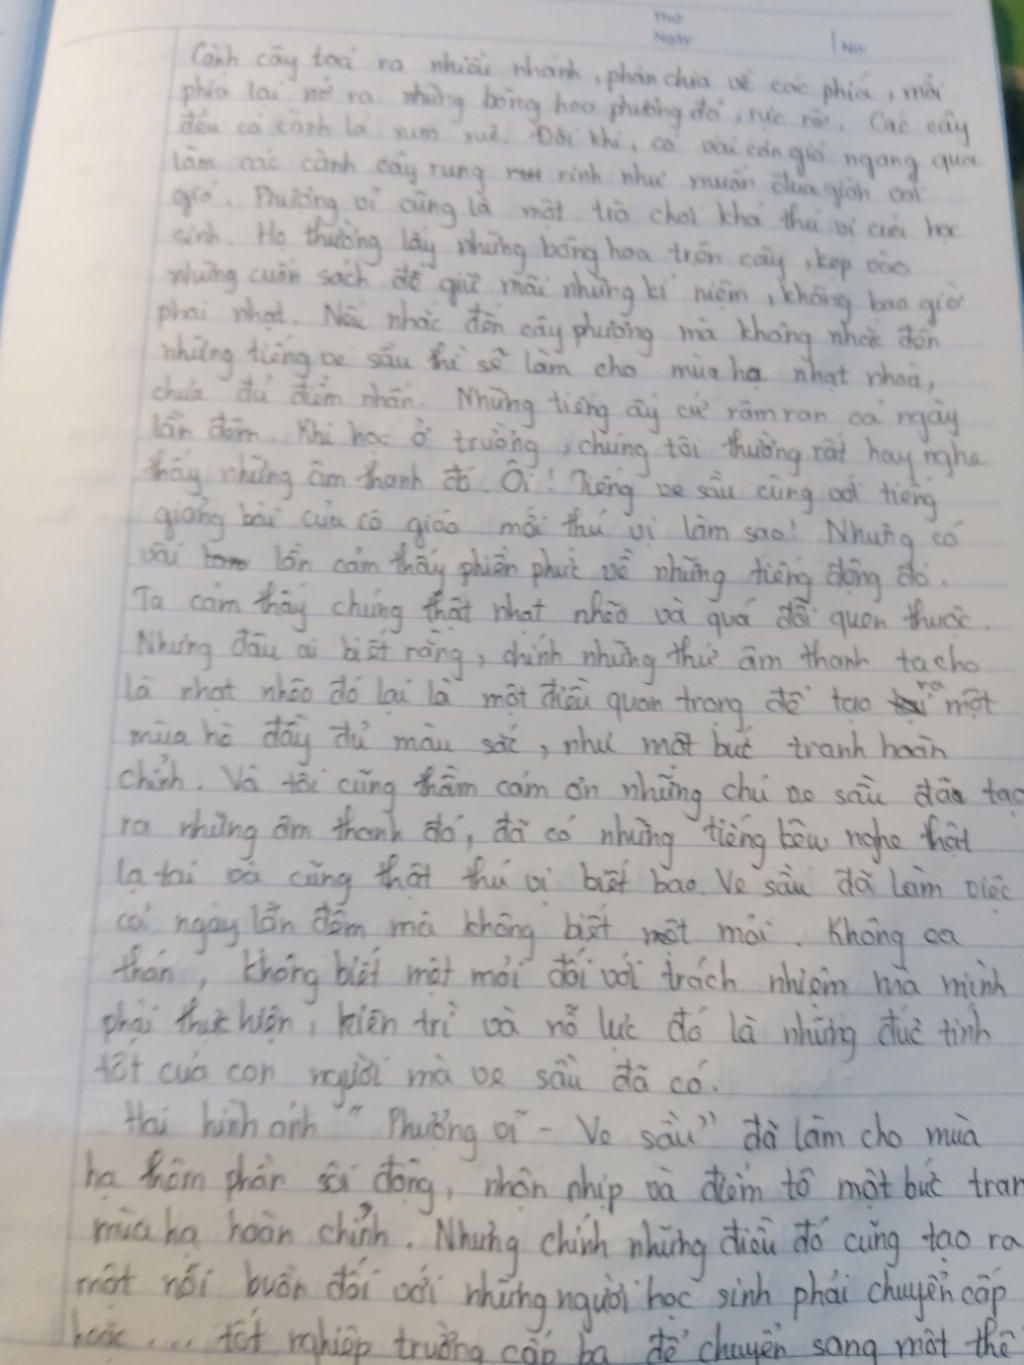 Thứ
Ngày
No.
Cành cây toả ra nhiều nhánh, phân chia về các phía, mỗi
phía lại nở ra những bông hoa phượng đỏ, rực rỡ. Các cây
đều có cành lá xum xuê. Đôi khi, có vài cơn gió ngang qua
làm các cành cây rung rinh như muốn đùa giỡn với
gió. Phượng vĩ cũng là một trò chơi khá thú vị của học
sinh. Họ thường lấy những bông hoa trên cây, kẹp vào
những cuốn sách để giữ mãi những kỉ niệm, không bao giờ
phai nhạt. Nếu nhắc đến cây phượng mà không nhắc đến
những tiếng ve sầu thì sẽ làm cho mùa hạ nhạt nhoà,
chưa đủ điểm nhấn. Những tiếng ấy cứ râm ran cả ngày
lẫn đêm. Khi học ở trường, chúng tôi thường rất hay nghe
thấy những âm thanh đó. Ôi! Tiếng ve sầu cùng với tiếng
giảng bài của cô giáo mới thú vị làm sao! Nhưng có
vài lần cảm thấy phiền phức về những tiếng động đó.
Ta cảm thấy chúng thật nhạt nhẽo và quá đỗi quen thuộc.
Nhưng đâu ai biết rằng, chính những thứ âm thanh ta cho
là nhạt nhẽo đó lại là một điều quan trọng để tạo ra một
mùa hè đầy đủ màu sắc, như một bức tranh hoàn
chỉnh. Và tôi cũng thầm cám ơn những chú ve sầu đã tạo
ra những âm thanh đó, đã có những tiếng kêu nghe thật
lạ tai và cũng thật thú vị biết bao. Ve sầu đã làm việc
cả ngày lẫn đêm mà không biết mệt mỏi. Không ca
thán, không biết mệt mỏi đối với trách nhiệm mà mình
phải thực hiện, kiên trì và nỗ lực đó là những đức tính
tốt của con người mà ve sầu đã có.
Hai hình ảnh "Phượng vĩ - Ve sầu" đã làm cho mùa
hạ thêm phần sôi động, nhộn nhịp và điểm tô một bức tran
mùa hạ hoàn chỉnh. Nhưng chính những điều đó cũng tạo ra
một nỗi buồn đối với những người học sinh phải chuyển cấp
hoặc ... tốt nghiệp trường cấp ba để chuyển sang một thế